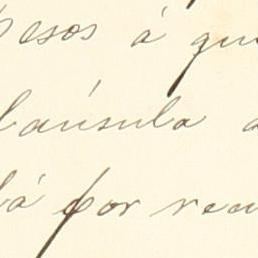 pesos á qu
láusula a
lá por rea